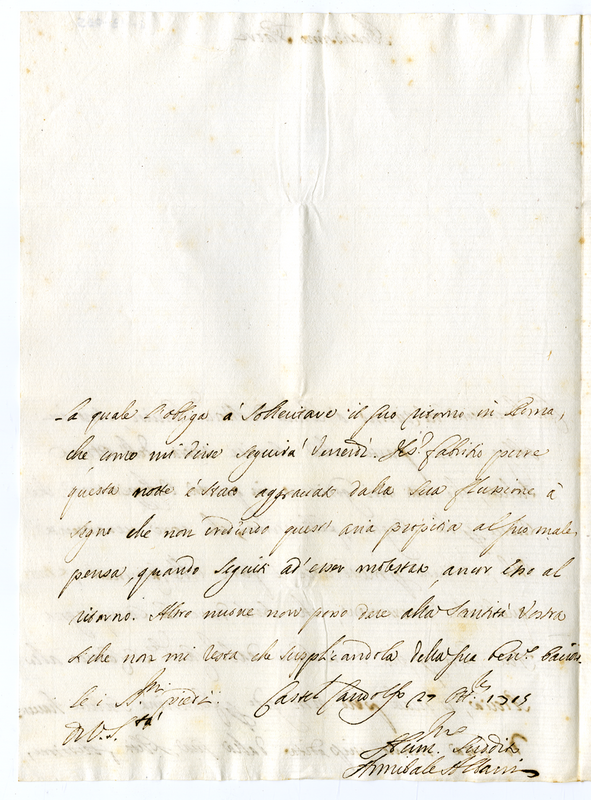 la quale l'obliga à sollecitare il suo ritorno in Roma,
che como mi disse seguirà Venerdì. Il S.r fabritio pure
questa notte è stato aggraviato dalla sua flussione à
segno che non credendo quest'aria propitia al suo male,
pensa, quando seguiti ad' esser molestato, ancor esso al
ritorno. Altro nuove non posso dare alla Santità Vostra
si che non mi resta che supplicandola della sua Ben.e bacio
le i S.mi piedi. Castel Gandolfo 27 Ott.re 1715
Di V. S.tà
Hum. Suddito
Annibale Albani